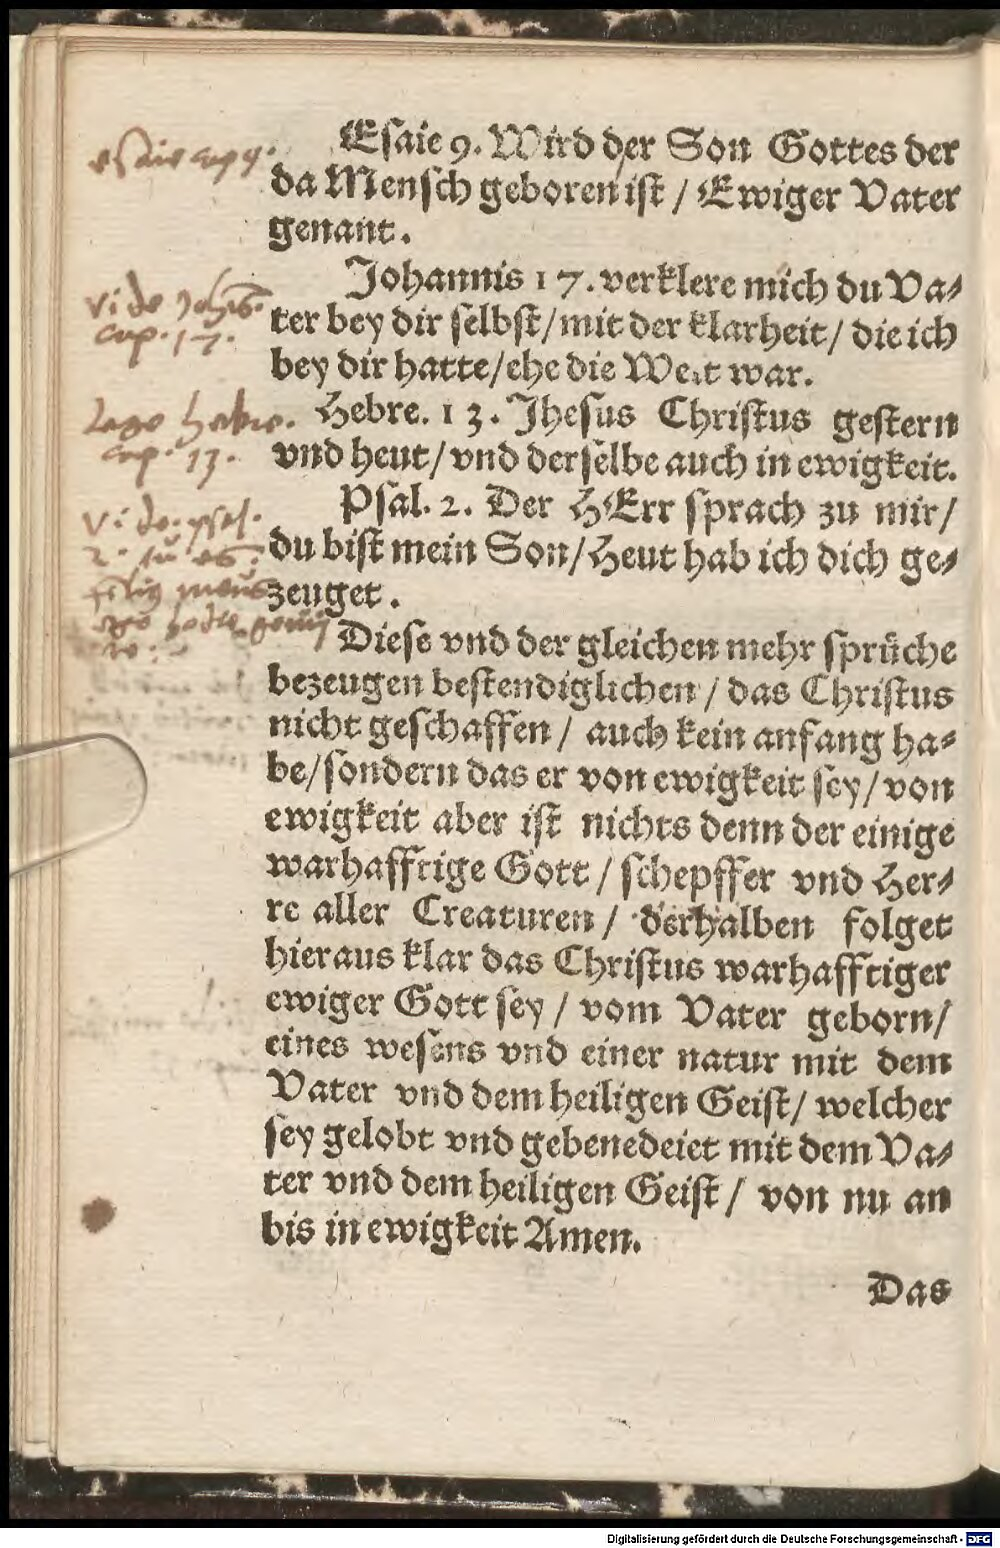 Esaie cap 9.
Esaie 9. Wird der Son Gottes der
da Mensch geboren ist / Ewiger Vater
genant.
Vide Johis.
cap. 17.
Johannis 17. verklere mich du Va⸗
ter bey dir selbst/mit der klarheit/ die ich
bey dir hatte/ehe die Welt war.
Lege hebre.
cap. 13.
Hebre. 13. Jhesus Christus gestern
vnd heut/ vnd derselbe auch in ewigkeit.
Vide. psal.
2. tu es
filius meus
ego hodie genui
te.
Psal. 2. Der HErr sprach zu mir/
du bist mein Son/Heut hab ich dich ge⸗
zeuget.
Diese vnd der gleichen mehr sprüche
bezeugen bestendiglichen / das Christus
nicht geschaffen / auch kein anfang ha⸗
be/sondern das er von ewigkeit sey/ von
ewigkeit aber ist nichts denn der einige
warhafftige Gott / schepffer vnd Her⸗
re aller Creaturen / derhalben folget
hieraus klar das Christus warhafftiger
ewiger Gott sey / vom Vater geborn/
eines wesens vnd einer natur mit dem
Vater vnd dem heiligen Geist/ welcher
sey gelobt vnd gebenedeiet mit dem Va⸗
ter vnd dem heiligen Geist / von nu an
bis in ewigkeit Amen.
Das
Digitalisierung gefördert durch die Deutsche Forschungsgemeinschaft - DFG